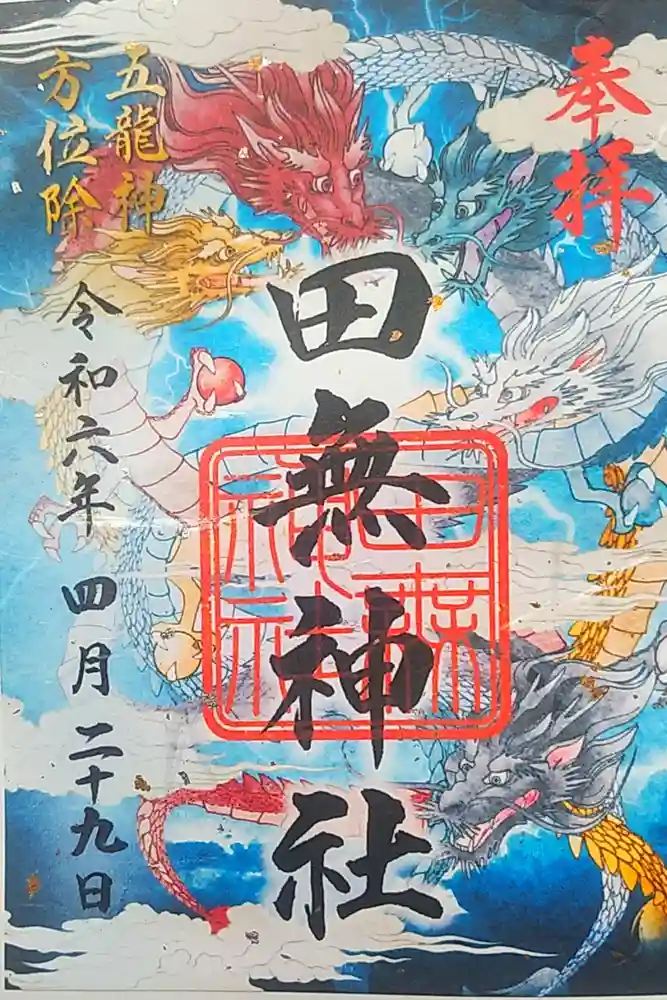 奉拝
田無神社
五龍神
方位除
令和六年 四月二十九日
田無神社